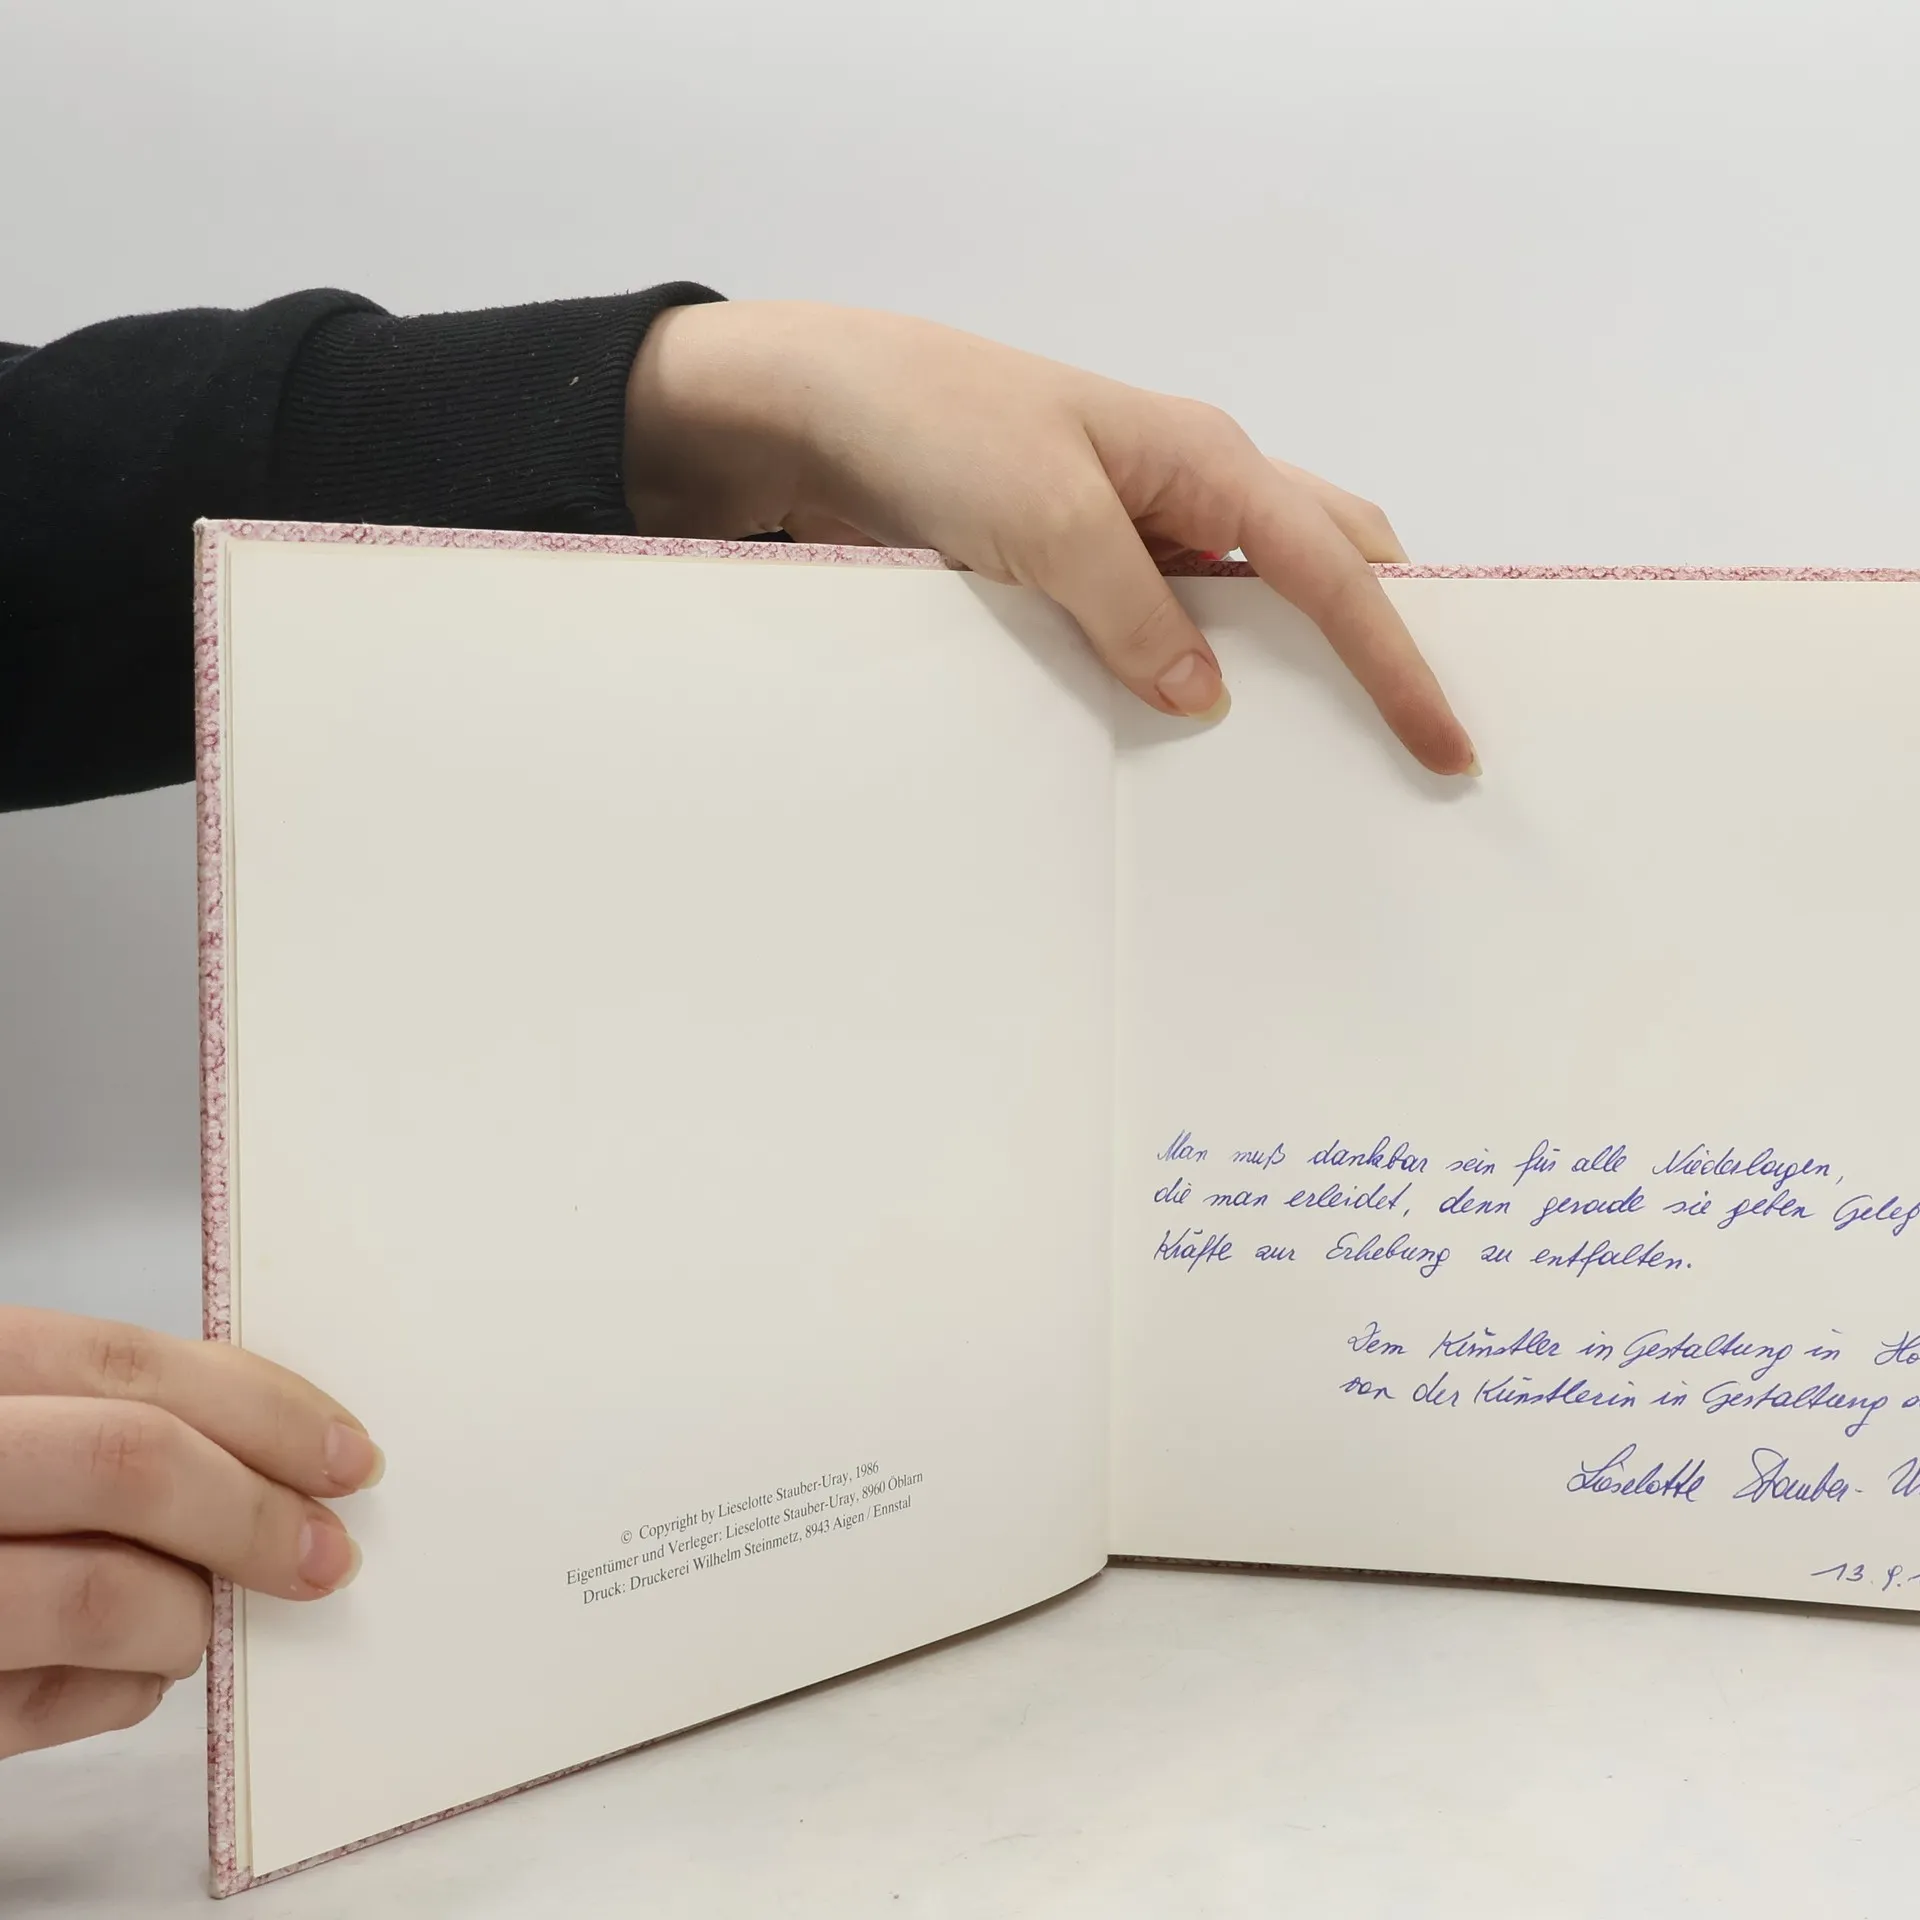 © Copyright by Lieselotte Stauber-Uray, 1986
Eigentümer und Verleger: Lieselotte Stauber-Uray, 8960 Öblarn
Druck: Druckerei Wilhelm Steinmetz, 8943 Aigen / Ennstal
Man muß dankbar sein für alle Niederlagen,
die man erleidet, denn gerade sie geben
Kräfte zur Erhebung zu entfalten.
Dem Künstler in Gestaltung in
von der Künstlerin in Gestaltung
Lieselotte Stauber-
13.9.